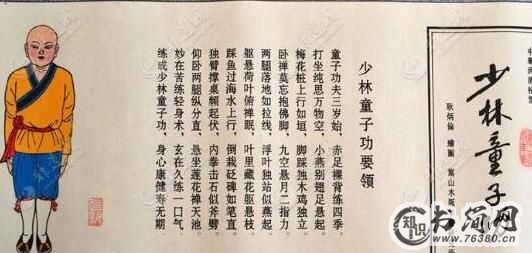 少林童子
耿炳倫 繪圖 嵩山木版
少林童子功要领
童子功夫三岁始，赤足裸背练四季。
打坐纯思万物空，小燕别翅足悬起。
梅花桩上行如垣，脚踩独木鸡独立
卧禅莫忘抱佛脚，九空悬月二指力
两腿落地如拉线，浮叶独站似燕起
躯悬荷叶俯禅眠，叶里藏花躯悬枝
踩鱼过海水上行，倒栽砭碑如笔直
独臂撑桌频起伏，内拳击石似斧劈
仰卧两腿纵分直，悬坐莲花禅天池
妙在苦练轻身术，玄在久练一口气。
练成少林童子功，身心康健寿无期
知识 书简网
www.76380.cn